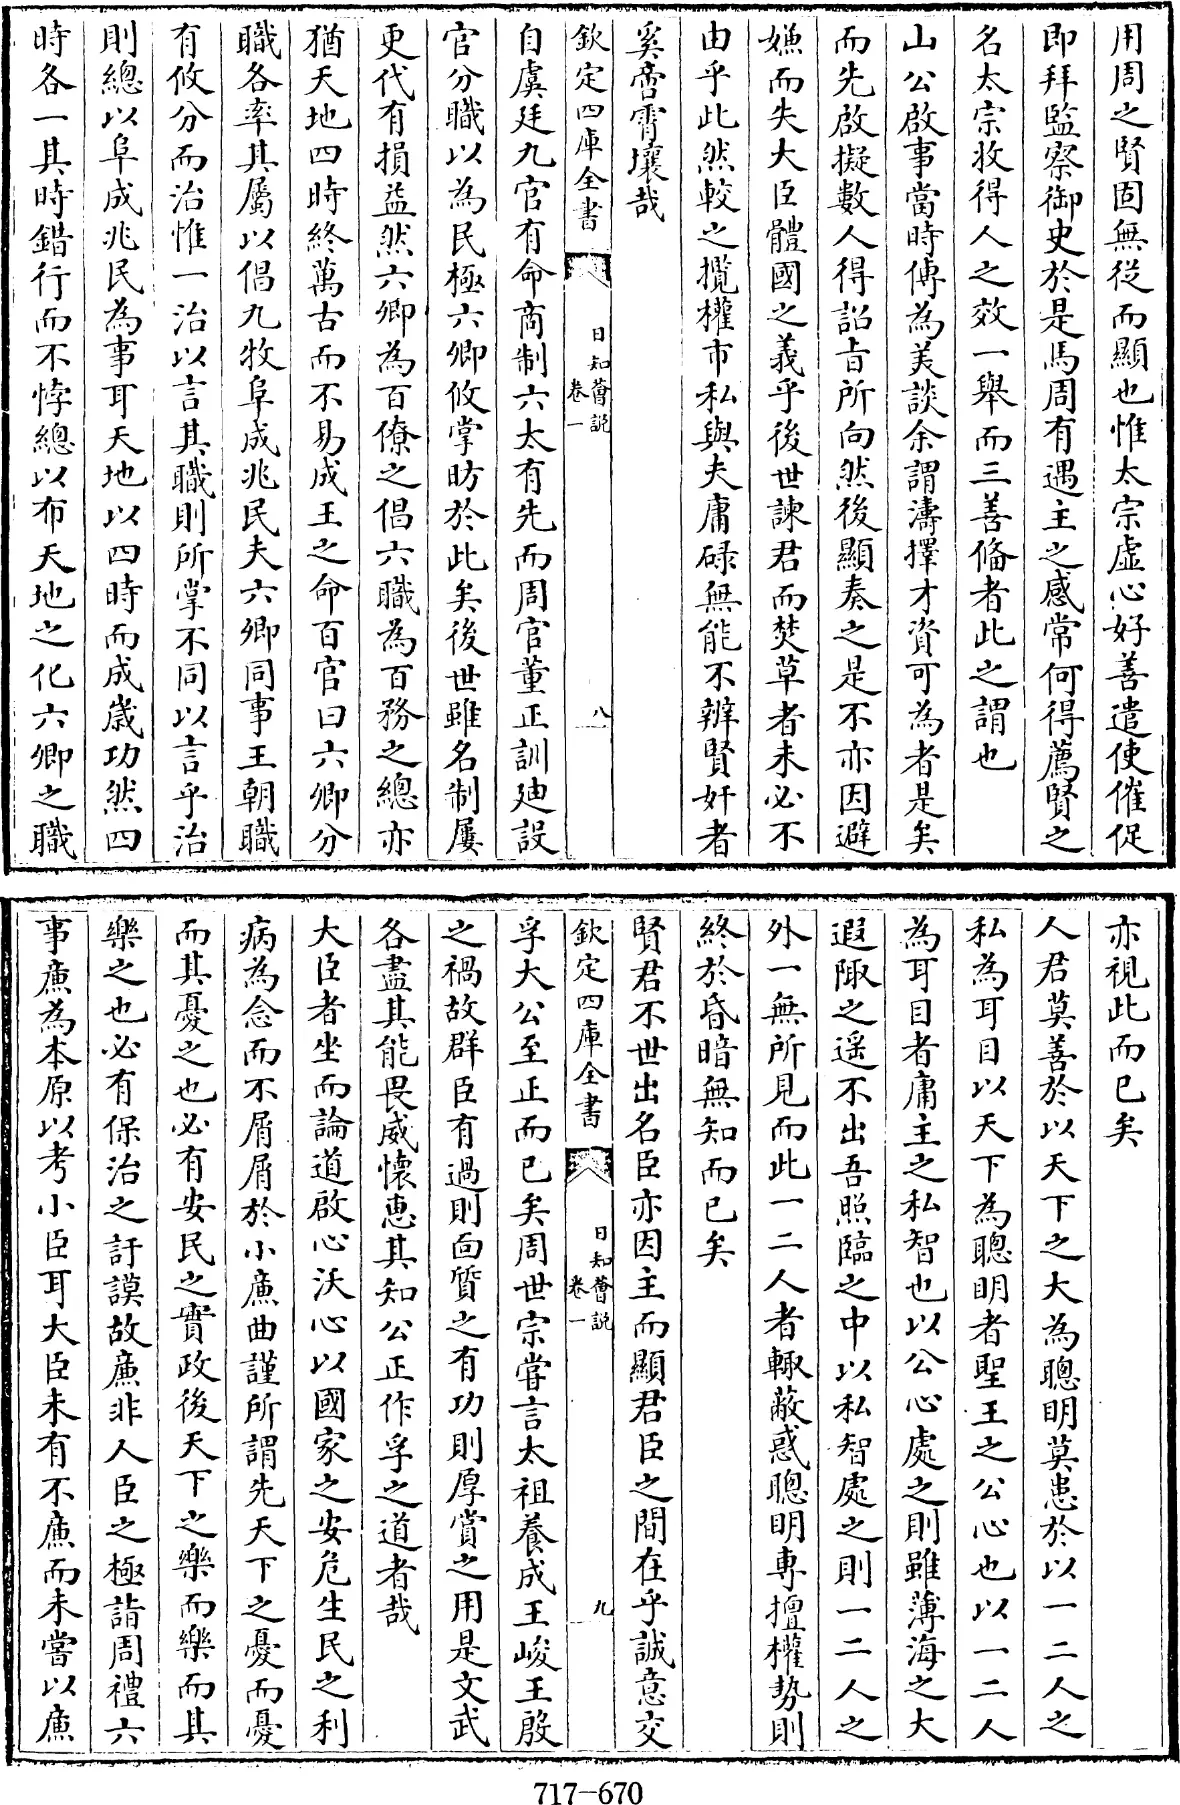 用周之賢固無從而顯也惟太宗虛心好善遣使催促
即拜監察御史於是馬周有遇主之感常何得薦賢之
名太宗收得人之效一舉而三善偹者此之謂也
山公啟事當時傳為美談余謂濤擇才資可為者是矣
而先啟擬數人得詔旨所向然後顯奏之是不亦因避
嫌而失大臣體國之義乎後世諫君而焚草者未必不
由乎此然較之攬權市私與夫庸碌無能不辨賢奸者
奚啻霄壤哉
欽定四庫全書
日知薈説
卷一
八
自虞廷九官有命商制六太有先而周官董正訓廸設
官分職以為民極六卿攸掌昉於此矣後世雖名制屢
更代有損益然六卿為百僚之倡六職為百務之總亦
猶天地四時終萬古而不易成王之命百官曰六卿分
職各率其屬以倡九牧阜成兆民夫六卿同事王朝職
有攸分而治惟一治以言其職則所掌不同以言乎治
則總以阜成兆民為事耳天地以四時而成歲功然四
時各一其時錯行而不悖總以布天地之化六卿之職
亦視此而已矣
人君莫善於以天下之大為聰明莫患於以一二人之
私為耳目以天下為聰明者聖王之公心也以一二人
為耳目者庸主之私智也以公心處之則雖薄海之大
遐陬之遥不出吾照臨之中以私智處之則一二人之
外一無所見而此一二人者輙蔽惑聰明專擅權勢則
終於昏暗無知而已矣
賢君不世出名臣亦因主而顯君臣之間在乎誠意交
欽定四庫全書
日知薈説
卷一
九
孚大公至正而已矣周世宗嘗言太祖養成王峻王殷
之禍故群臣有過則面質之有功則厚賞之用是文武
各盡其能畏威懷惠其知公正作孚之道者哉
大臣者坐而論道啟心沃心以國家之安危生民之利
病為念而不屑屑於小廉曲謹所謂先天下之憂而憂
而其憂之也必有安民之實政後天下之樂而樂而其
樂之也必有保治之訏謨故廉非人臣之極詣周禮六
事廉為本原以考小臣耳大臣未有不廉而未嘗以廉
717-670